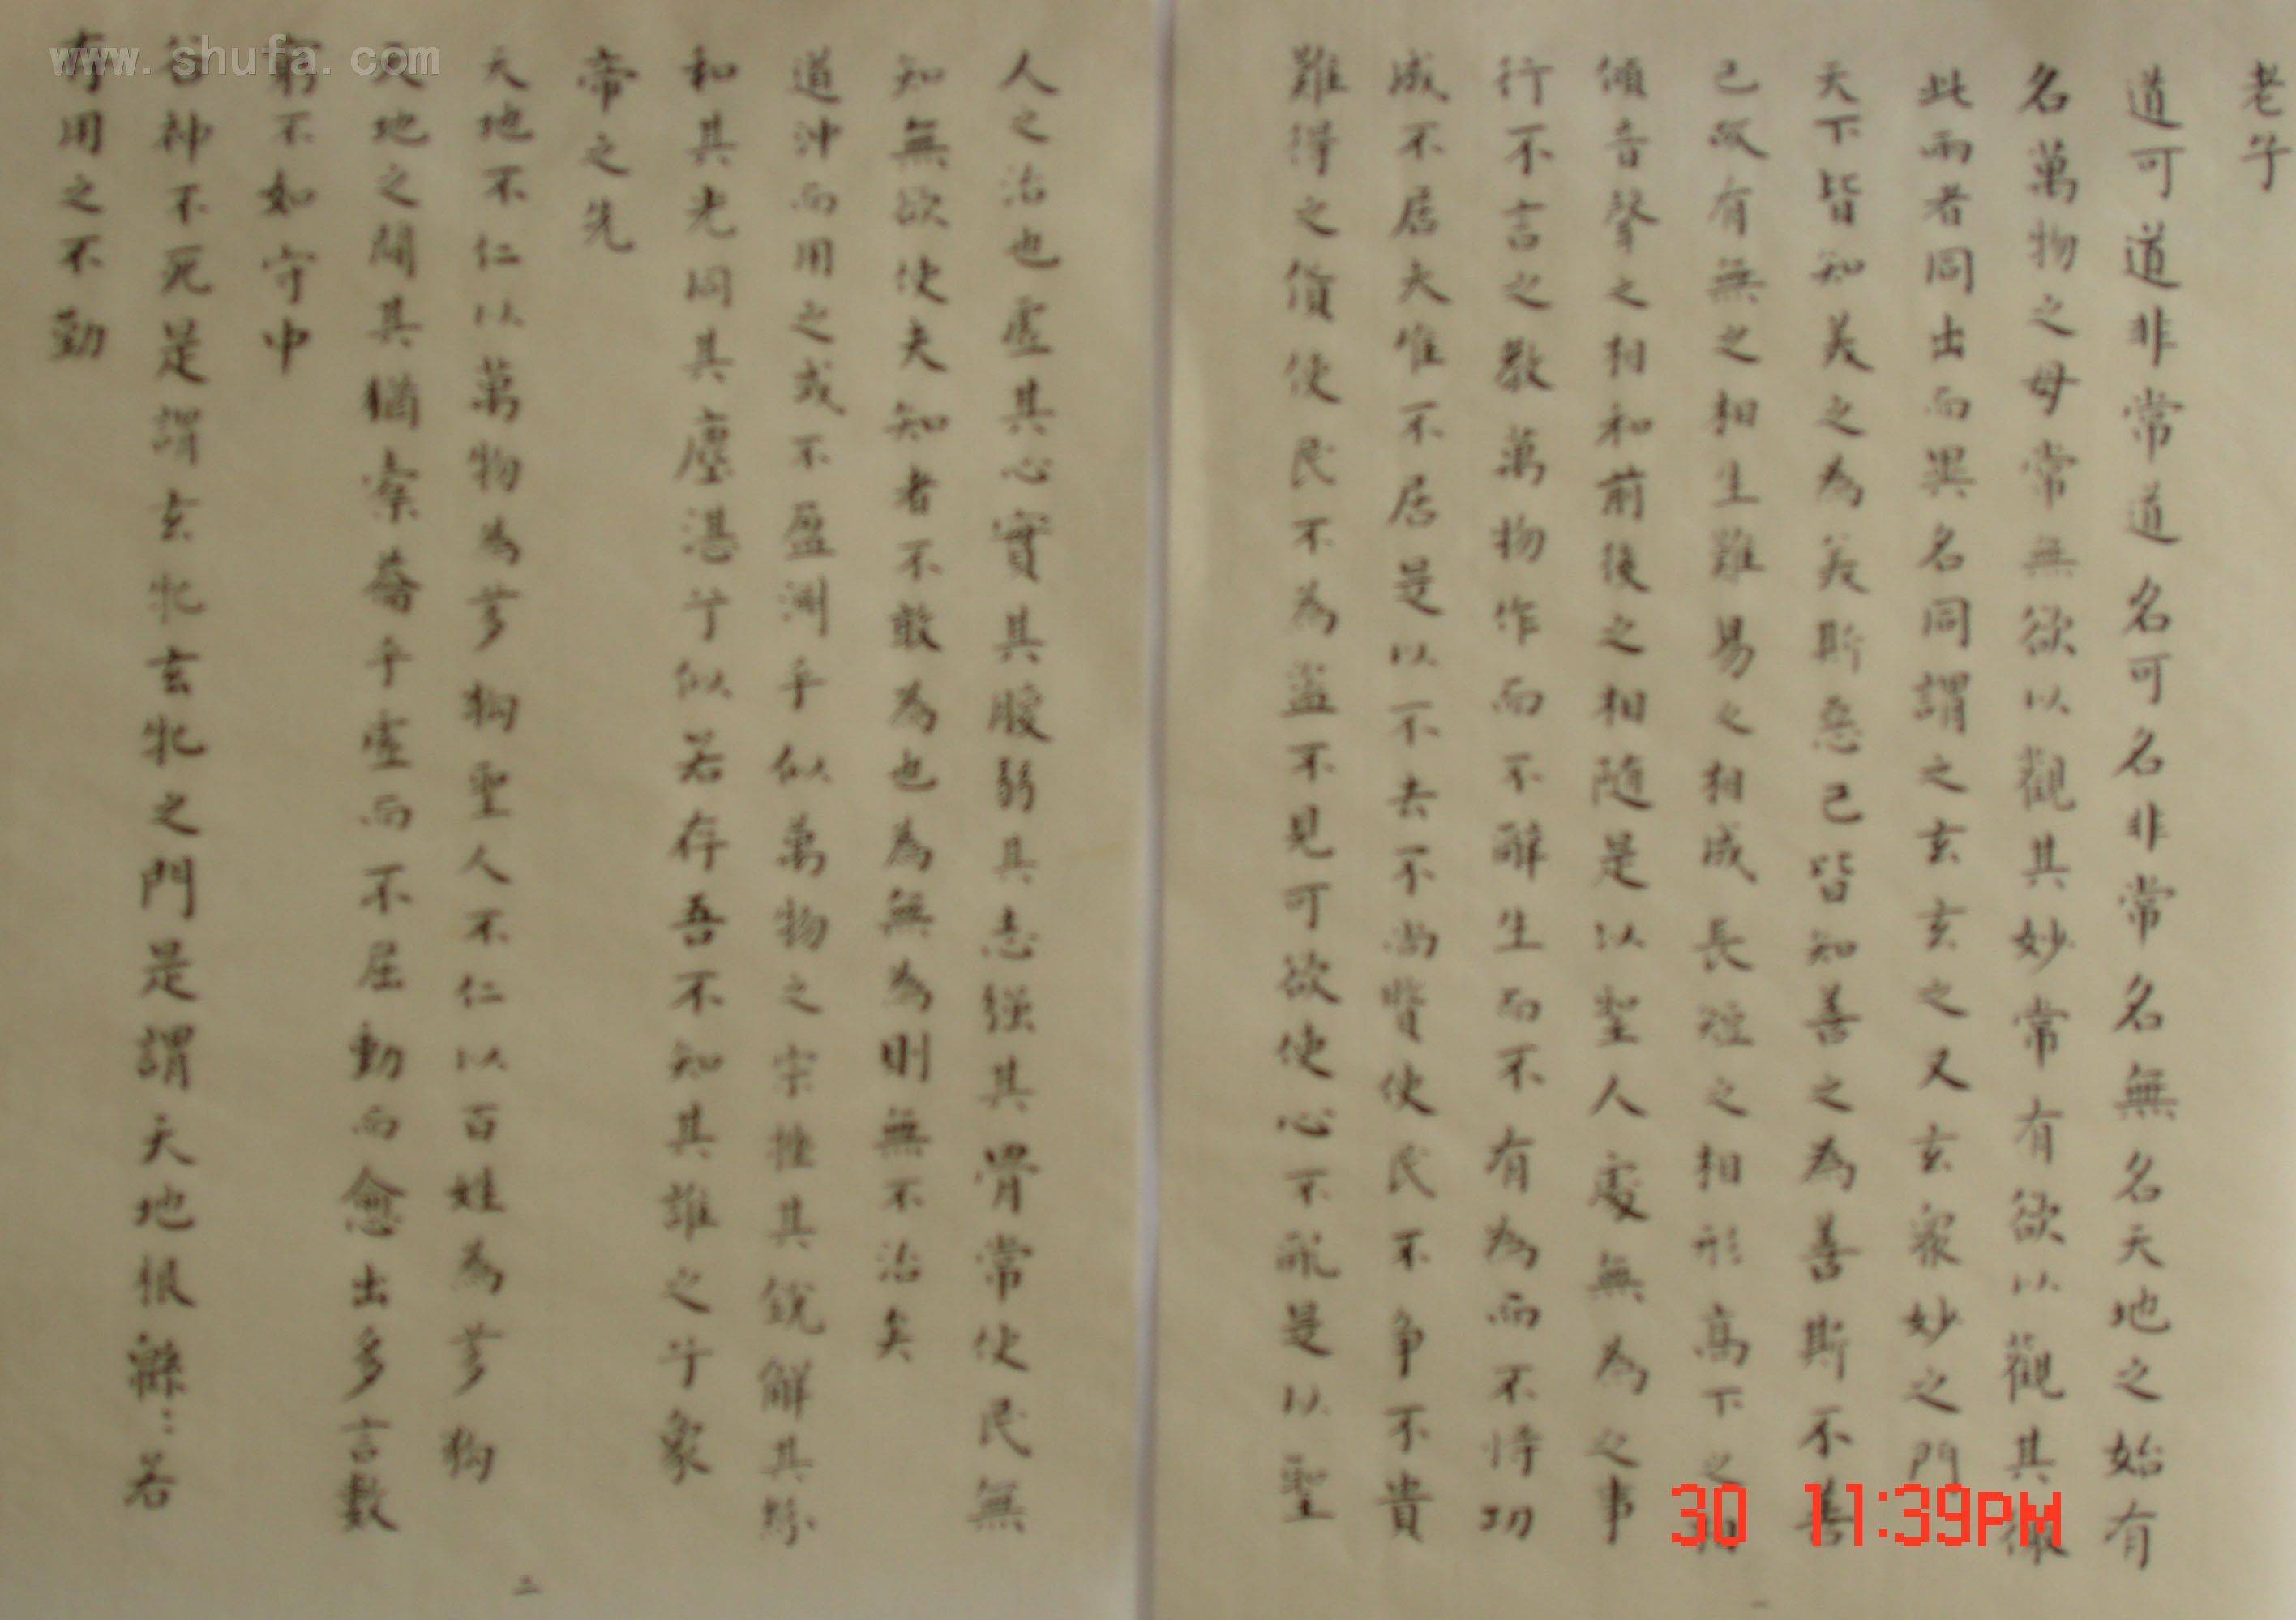 老子
道可道非常道名可名非常名無名天地之始有
名萬物之母常無欲以觀其妙常有欲以觀其徼
此兩者同出而異名同謂之玄玄之又玄眾妙之門
天下皆知美之為美斯惡已皆知善之為善斯不善
已故有無之相生難易之相成長短之相形高下之相
傾音聲之相和前後之相隨是以聖人處無為之事
行不言之教萬物作而不辭生而不有為而不恃功
成不居夫惟不居是以不去不尚賢使民不爭不貴
難得之貨使民不為盜不見可欲使心不亂是以聖
人之治也虛其心實其腹弱其志強其骨常使民無
知無欲使夫知者不敢為也為無為則無不治矣
道沖而用之或不盈淵乎似萬物之宗挫其銳解其紛
和其光同其塵湛兮似若存吾不知其誰之子象
帝之先
天地不仁以萬物為芻狗聖人不仁以百姓為芻狗
天地之間其猶橐籥乎虛而不屈動而愈出多言數
窮不如守中
谷神不死是謂玄牝玄牝之門是謂天地根綿:若
存用之不勤
一
二
www.shufa.com
30 11:39PM